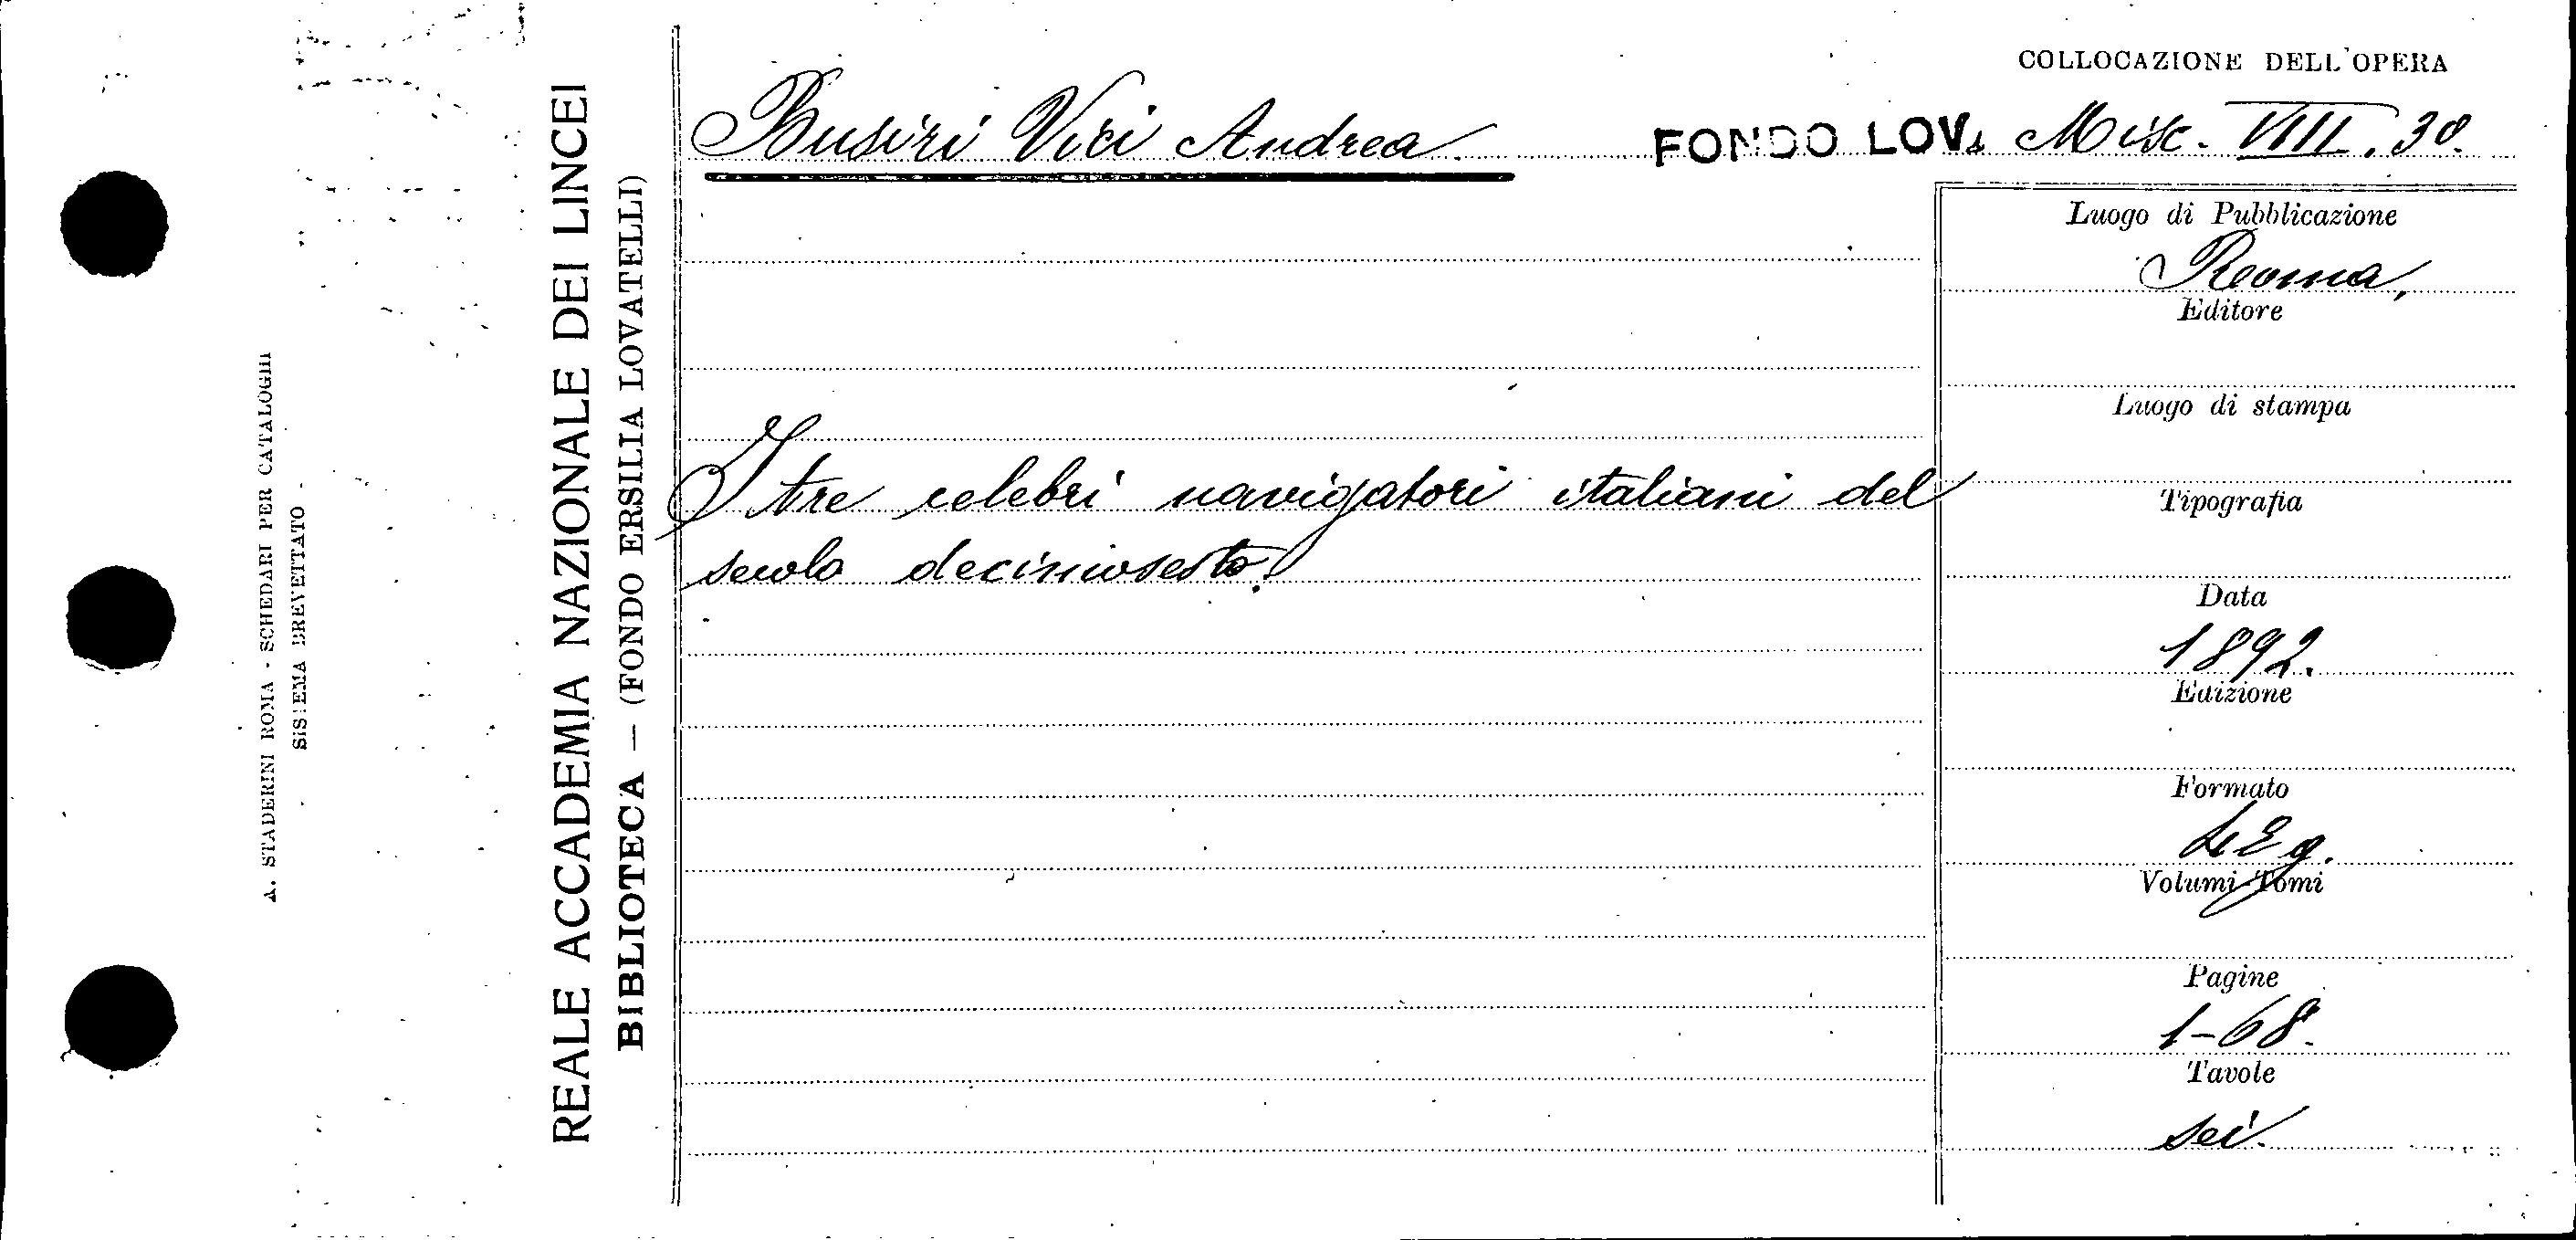 A. STADERINI ROMA - SCHEDARI PER CATALOGHI
SISTEMA BREVETTATO -
REALE ACCADEMIA NAZIONALE DEI LINCEI
BIBLIOTECA — (FONDO ERSILIA LOVATELLI)
COLLOCAZIONE DELL'OPERA
Busiri Vici Andrea.
FONDO LOV. Misc. VIII. 30.
I tre celebri navigatori italiani del
secolo decimosesto.
Luogo di Pubblicazione
Roma,
Editore
Luogo di stampa
Tipografia
Data
1892.
Edizione
Formato
Volumi-Tomi
Pagine
1-68.
Tavole
sei.